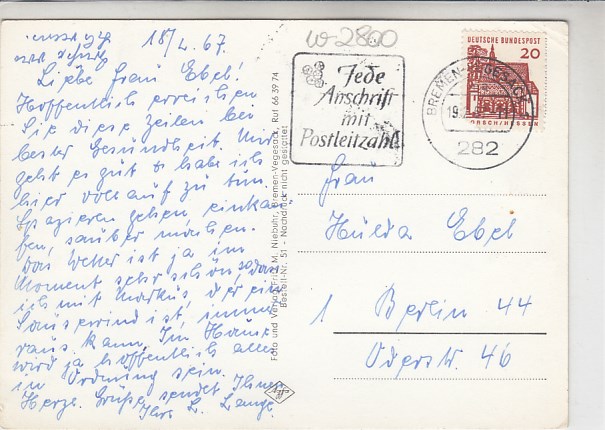 18/4.67.
Liebe Frau Ebel!
Hoffentlich erreichen
Sie diese Zeilen bei
bester Gesundheit. Mir
geht es gut & habe ich
hier vollauf zu tun
Spazieren gehen, einkau-
fen, sauber machen.
Das Wetter ist ja im
Moment sehr schön, sodass
ich mit Markus, der ein
Sausewind ist, immer
raus kann. Im Hause
wird ja hoffentlich alles
in Ordnung sein.
Herzl. Grüße sendet Ihnen
Ihre L. Lange.
Foto und Verlag Fritz M. Niebuhr, Bremen-Vegesack, Ruf 66 39 74
Bestell-Nr. 51 - Nachdruck nicht gestattet
W-2800
Jede
Anschrift
mit
Postleitzahl
BREMEN-VEGESACK
282
DEUTSCHE BUNDESPOST
20
LORSCH/HESSEN
Frau
Hulda Ebel
1 Berlin 44
Oderstr. 46